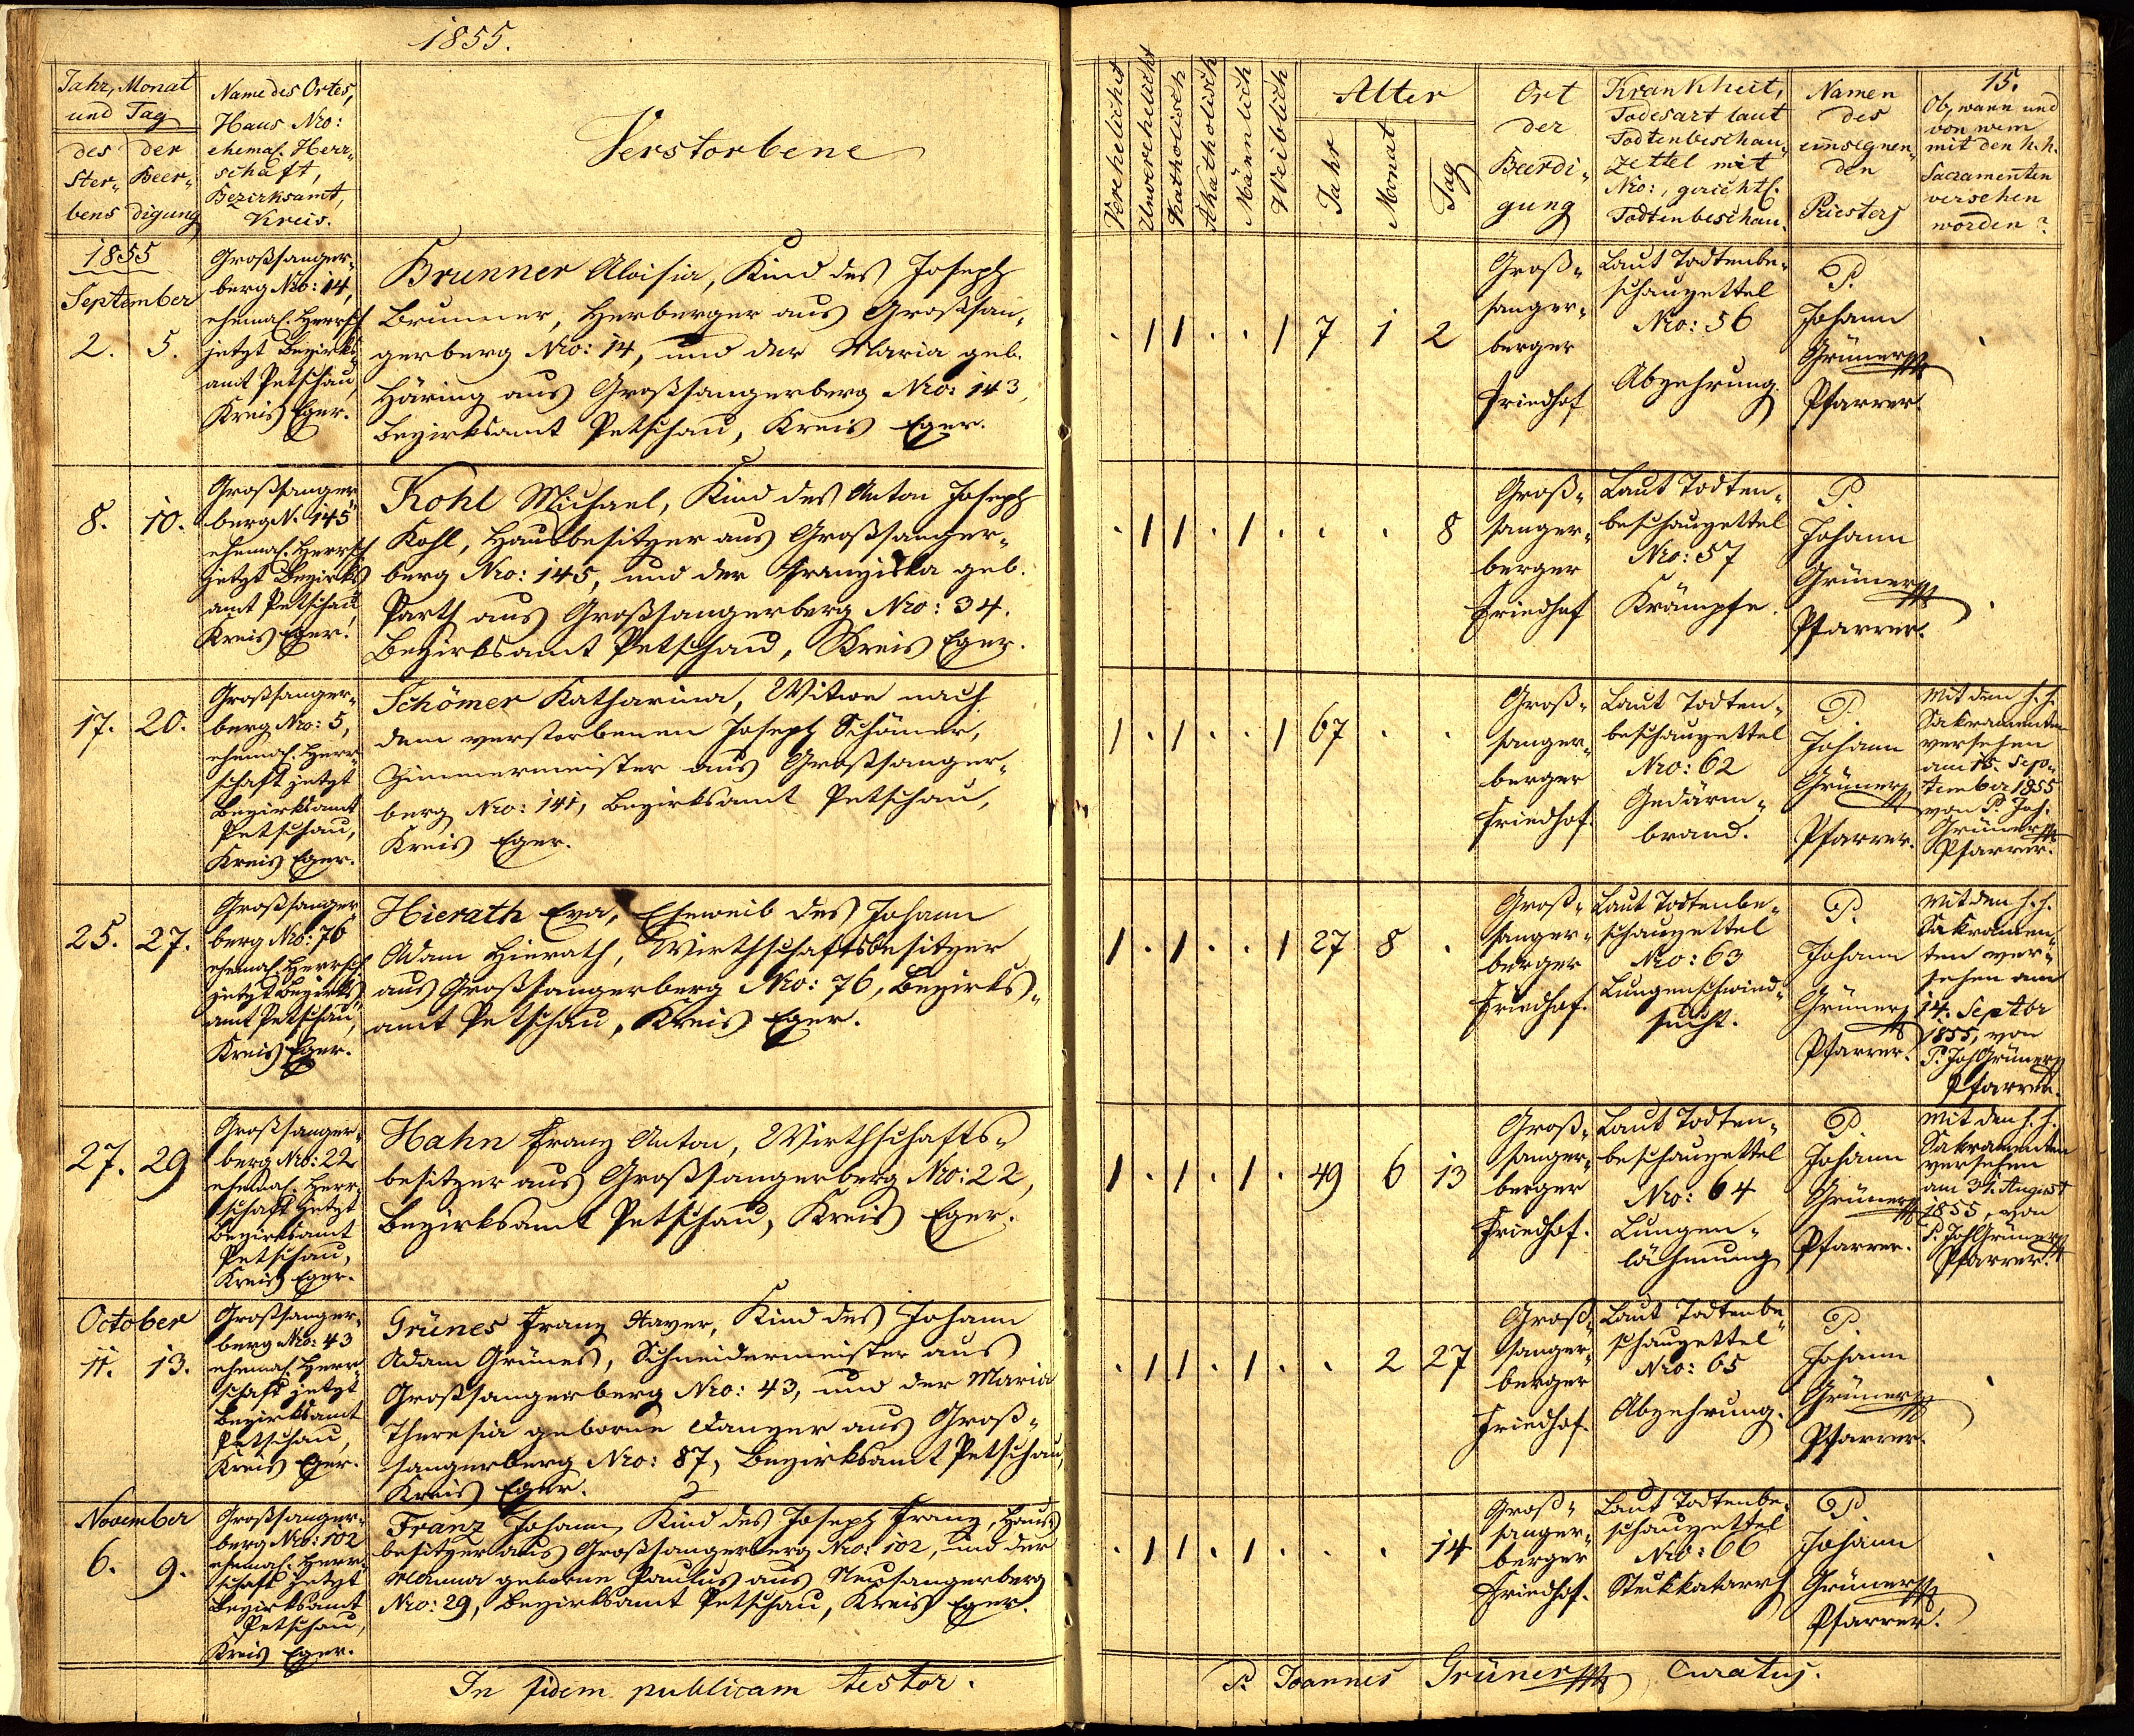 1855.
Jahr, Monat
und Tag
des
Ster-
bens
der
Beer-
digung
Name des Ortes,
Haus Nro:
ehemal. Herr-
schaft,
Bezirksamt,
Kreis.
Verstorbene
Verehelicht
Unverehelicht
Katholisch
Akatholisch
Männlich
Weiblich
Alter
Jahr
Monat
Tag
Ort
der
Beerdi-
gung
Krankheit,
Todesart laut
Todtenbeschau-
zettel mit
Nro:, gerichtl.
Todtenbeschau.
Namen
des
einsegnen-
den
Priesters
15.
Ob, wann und
von wem
mit den h. h.
Sacramenten
versehen
worden?
1855
September
2. 5.
Großsanger-
berg Nro: 14,
ehemal. Herrsch
jetzt Bezirks-
amt Petschau,
Kreis Eger.
Brunner Aloisia, Kind des Joseph
Brunner, Herberger aus Großsan-
gerberg Nro: 14, und der Maria geb.
Häring aus Großsangerberg Nro: 143,
Bezirksamt Petschau, Kreis Eger.
. 1 1 . . 1 7 1 2
Groß-
sanger-
berger
Friedhof
Laut Todtenbe-
schauzettel
Nro: 56
Abzehrung.
P.
Johann
Grüner
Pfarrer.
.
8. 10.
Großsanger-
berg N. 145
ehemal. Herrsch
jetzt Bezirks
amt Petschau,
Kreis Eger.
Kohl Michael, Kind des Anton Joseph
Kohl, Hausbesitzer aus Großsanger-
berg Nro: 145, und der Franziska geb.
Parth aus Großsangerberg Nro: 34.
Bezirksamt Petschau, Kreis Eger.
. 1 1 . 1 . . . 8
Groß-
sanger-
berger
Friedhof
Laut Todten-
beschauzettel
Nro: 57
Krämpfe.
P.
Johann
Grüner
Pfarrer.
.
17. 20.
Großsanger-
berg Nro: 5,
ehemal. Herr-
schaft jetzt
Bezirksamt
Petschau,
Kreis Eger.
Schömer Katharina, Witwe nach
dem verstorbenen Joseph Schömer,
Zimmermeister aus Großsanger-
berg Nro: 141, Bezirksamt Petschau,
Kreis Eger.
1 . 1 . . 1 67 . .
Groß-
sanger-
berger
Friedhof.
Laut Todten-
beschauzettel
Nro: 62
Gedärm-
brand.
P.
Johann
Grüner
Pfarrer.
Mit den h. h.
Sakramenten
versehen
am 15. Sep-
tember 1855
von P. Joh.
Grüner
Pfarrer.
25. 27.
Großsanger-
berg Nro: 76
ehemal. Herrsch
jetzt Bezirks-
amt Petschau,
Kreis Eger.
Hierath Eva, Eheweib des Johann
Adam Hierath, Wirthschaftsbesitzer
aus Großsangerberg Nro: 76, Bezirks-
amt Petschau, Kreis Eger.
1 . 1 . . 1 27 8 .
Groß-
sanger-
berger
Friedhof.
Laut Todtenbe-
schauzettel
Nro: 63
Lungenschwind-
sucht.
P.
Johann
Grüner
Pfarrer.
Mit den h. h.
Sakramen-
ten ver-
sehen am
14. Septbr
1855, von
P. Joh Grüner
Pfarrer.
27. 29
Großsanger-
berg Nro: 22
ehemal. Herr-
schaft jetzt
Bezirksamt
Petschau,
Kreis Eger.
Hahn Franz Anton, Wirthschafts-
besitzer aus Großsangerberg Nro: 22,
Bezirksamt Petschau, Kreis Eger.
1 . 1 . 1 . 49 6 13
Groß-
sanger-
berger
Friedhof.
Laut Todten-
beschauzettel
Nro: 64
Lungen-
lähmung
P.
Johann
Grüner
Pfarrer.
Mit den h. h.
Sakramenten
versehen
am 31. August
1855, von
P. Joh Grüner
Pfarrer.
October
11. 13.
Großsanger-
berg Nro: 43
ehemal. Herr-
schaft jetzt
Bezirksamt
Petschau,
Kreis Eger.
Grünes Franz Xaver, Kind des Johann
Adam Grünes, Schneidermeister aus
Großsangerberg Nro: 43, und der Maria
Theresia geborne Danzer aus Groß-
sangerberg Nro: 87, Bezirksamt Petschau,
Kreis Eger.
. 1 1 . 1 . . 2 27
Groß-
sanger-
berger
Friedhof.
Laut Todtenbe-
schauzettel
Nro: 65
Abzehrung.
P.
Johann
Grüner
Pfarrer.
.
November
6. 9.
Großsanger-
berg Nro: 102
ehemal. Herr-
schaft jetzt
Bezirksamt
Petschau,
Kreis Eger.
Franz Johann, Kind des Joseph Franz, Haus-
besitzer aus Großsangerberg Nro: 102, und der
geborne Paulus aus Neusangerberg
Nro: 29, Bezirksamt Petschau, Kreis Eger.
. 1 1 . 1 . . . 14
Groß-
sanger-
berger
Friedhof.
Laut Todtenbe-
schauzettel
Nro: 66
Stickkatarrh
P.
Johann
Grüner
Pfarrer.
.
In fidem publicam testor.
P. Joannes Grüner Curatus.